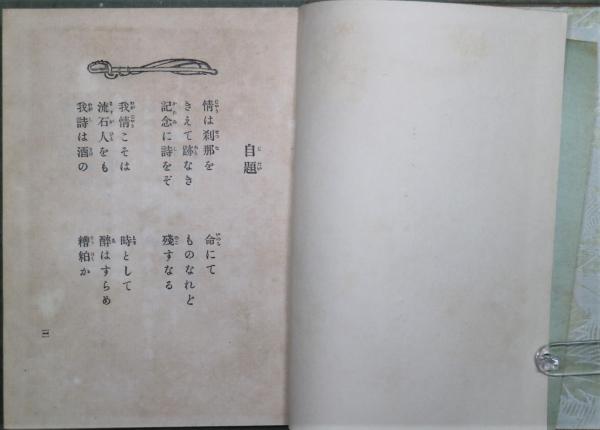 自題
情は刹那を　命にて
きえて跡なき　ものなれど
記念に詩をぞ　残すなる
我情こそは　時として
流石人をも　醉はすらめ
我詩は酒の　糟粕か